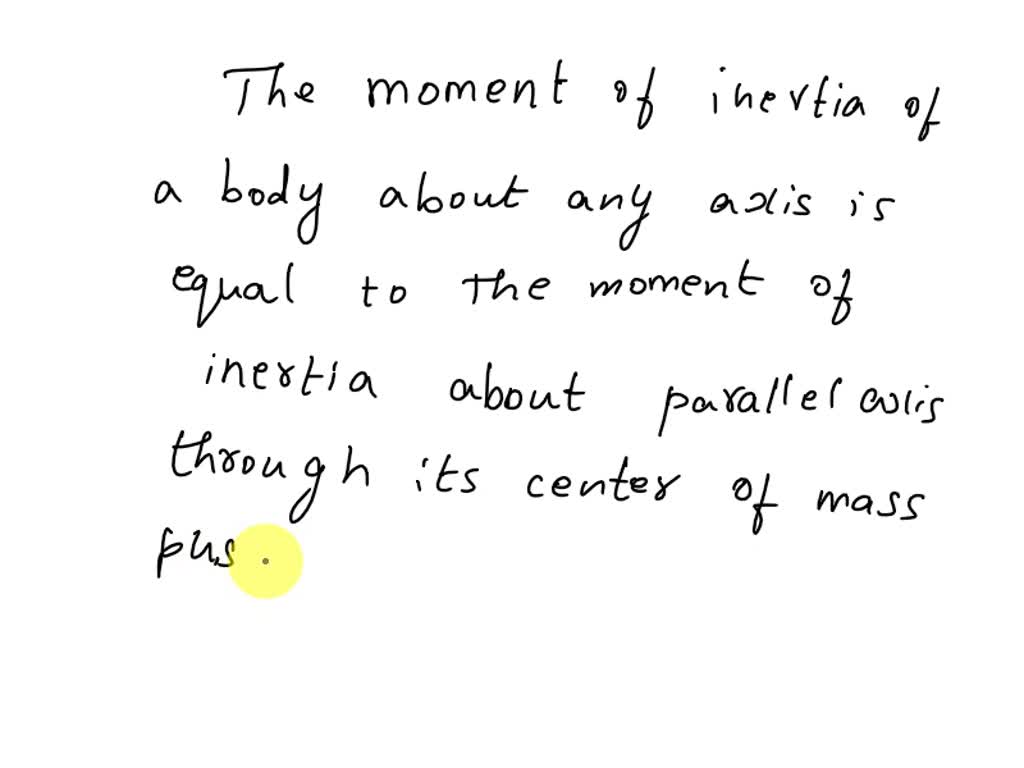 The moment of inertia of
a body about any axis is
equal to the moment of
inertia about parallel axis
through its center of mass
pus